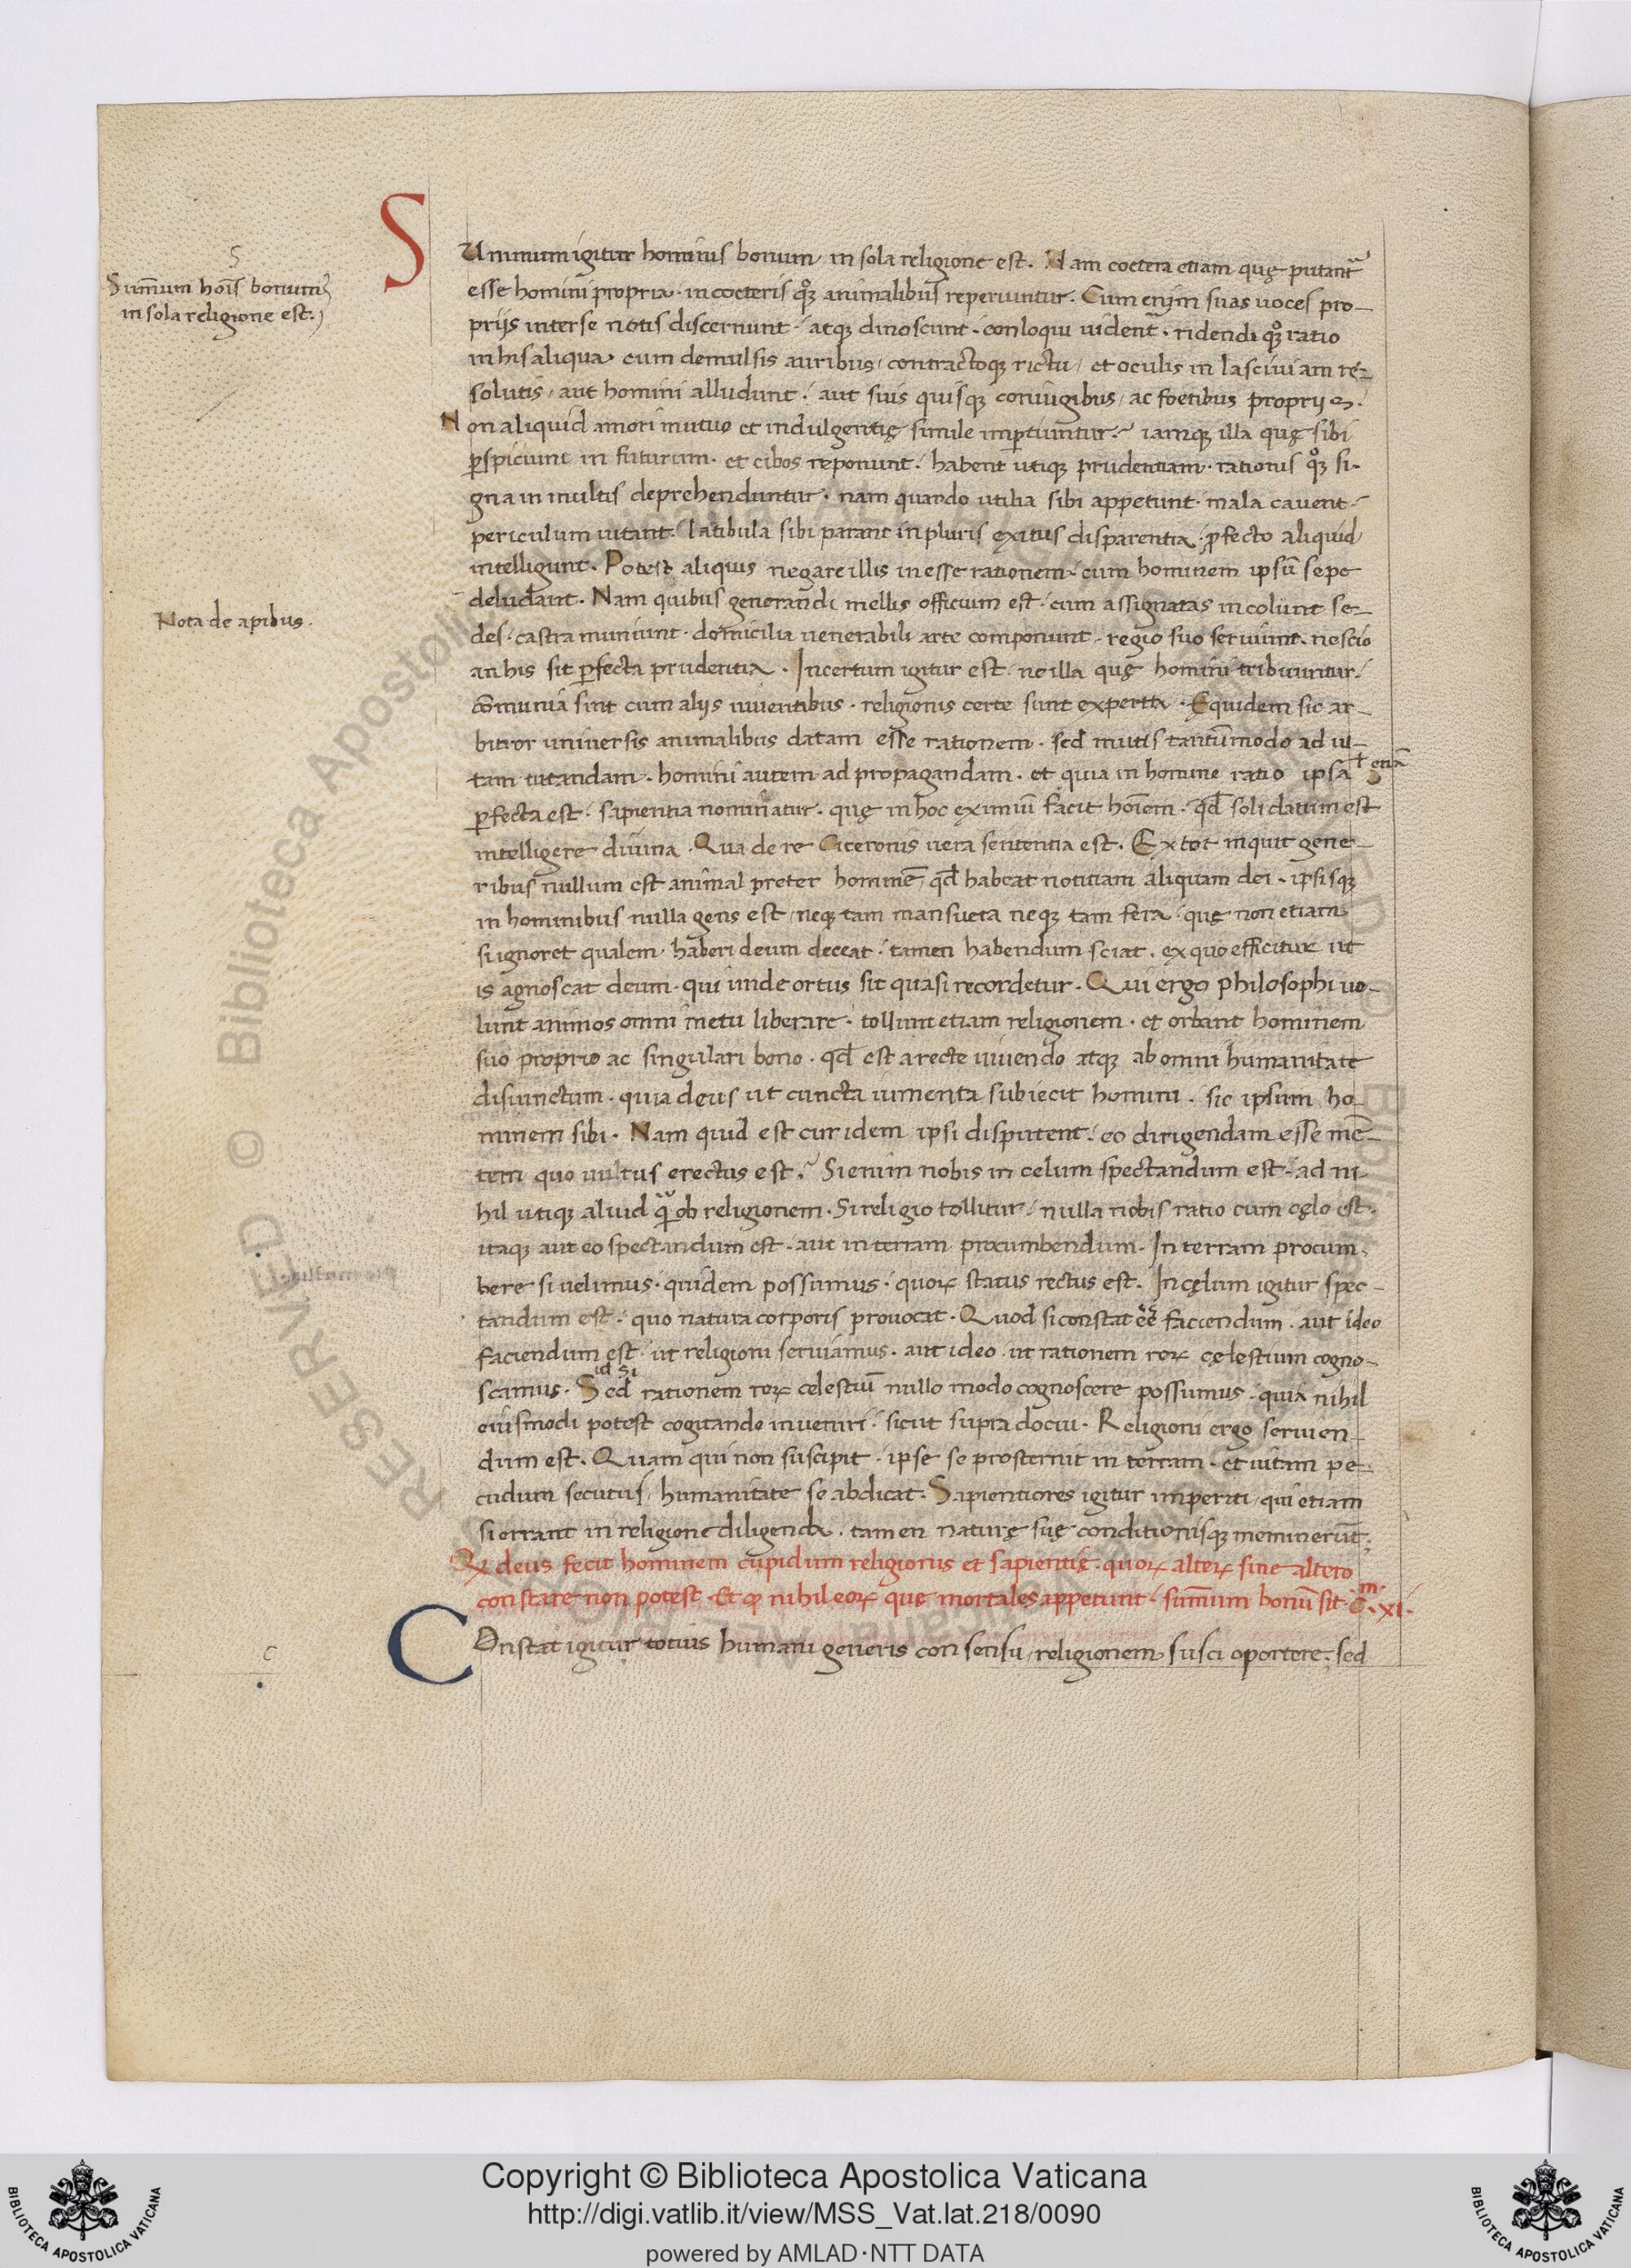 S
Summum hoīs bonum
in sola religione est.
S
Ummum igitur hominis bonum in sola religione est. Nam coetera etiam quę putantᷣ
esse homini propria · in coeteris quoꝗ animalibus reperiuntur. Cum enim suas uoces pro-
priis inter se notis discernunt · atqꝫ dinoscunt · conloqui uidentᷣ · ridendi quoꝗ ratio
in his aliqua · cum demulsis auribus / contractoqꝫ rictu / et oculis in lasciuiam re-
solutis / aut homini alludunt · aut suis quisqꝫ coniugibus / ac foetibus propriis.
Non aliquid amori mutuo et indulgentię simile imꝑtiuntur? iamqꝫ illa quę sibi
ꝑspiciunt in futurum · et cibos reponunt · habent utiqꝫ prudentiam · rationis quoꝗ si-
gna in multis deprehenduntur · nam quando utilia sibi appetunt · mala cauent ·
periculum uitant · latibula sibi parant in pluris exitus disparentia · ꝓfecto aliquid
intelligunt. Potest aliquis negare illis in esse rationem · cum hominem ipsū sepe
deludant. Nam quibus generandi mellis officium est · cum assignatas incolunt se-
Nota de apibus.
des · castra muniunt · domicilia uenerabili arte componunt · regio suo seruiunt · nescio
an his sit ꝑfecta prudentia. Incertum igitur est · ne illa quę homini tribuuntur ·
cōmunia sint cum aliis uiuentibus · religionis certe sunt expertia · Equidem sic ar-
bitror uniuersis animalibus datam esse rationem · sed mutis tantūmodo ad ui-
tam tutandam · homini autem ad propagandam · et quia in homine ratio ipsa
ꝑfecta est · sapientia nominatur · quę in hoc eximiū facit hoīem · qđ soli datum est
intelligere diuina · Qua de re Ciceronis uera sententia est. Ex tot inquit gene-
ribus nullum est animal preter hominē qđ habeat notitiam aliquam dei · ipsisqꝫ
in hominibus nulla gens est / neqꝫ tam mansueta neqꝫ tam fera · quę non etiam
si ignoret qualem haberi deum deceat · tamen habendum sciat · ex quo efficitur ut
is agnoscat deum · qui unde ortus sit quasi recordetur. Qui ergo philosophi uo-
lunt animos omni metu liberare · tollunt etiam religionem · et orbant hominem
suo proprio ac singulari bono · qđ est a recte uiuendo atqꝫ ab omni humanitate
disiunctum · quia deus ut cuncta iumenta subiecit homini · sic ipsum ho-
minem sibi. Nam quid est cur idem ipsi disputent · eo dirigendam esse mē-
tem quo uultus erectus est? Si enim nobis in celum spectandum est · ad ni-
hil utiqꝫ aliud q̃ ob religionem · Si religio tollitur / nulla nobis ratio cum cęlo est ·
itaqꝫ aut eo spectandum est · aut in terram procumbendum · In terram procum-
bere si uelimus · quidem possumus · quoꝝ status rectus est. In cęlum igitur spec-
tandum est · quo natura corporis prouocat · Quod si constat eē faciendum · aut ideo
faciendum est · ut religioni seruiamus · aut ideo ut rationem reꝝ cęlestium cogno-
scamus. Sed rationem reꝝ celestiū nullo modo cognoscere possumus · quia nihil
eiusmodi potest cogitando inueniri · sicut supra docui. Religioni ergo seruien-
dum est. Quam qui non suscipit · ipse se prosternit in terram · et uitam pe-
cudum secutus / humanitate se abdicat. Sapientiores igitur imperiti / qui etiam
si errant in religione diligenda · tamen naturę suę conditionisqꝫ meminerūt ;
Qꝫ deus fecit hominem cupidum religionis et sapientię · quoꝝ alteꝝ sine altero
constare non potest · Et ꝙ nihil eoꝝ quę mortales appetunt · summum bonū sit · C. XI.
C
Onstat igitur totius humani generis consensu / religionem susci oportere · sed
c
© Biblioteca Apostolica Vaticana
RESERVED
Copyright © Biblioteca Apostolica Vaticana
http://digi.vatlib.it/view/MSS_Vat.lat.218/0090
powered by AMLAD·NTT DATA
BIBLIOTECA APOSTOLICA VATICANA
BIBLIOTECA APOSTOLICA VATICANA